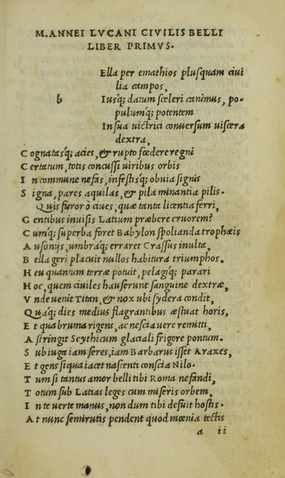 M. ANNEI LVCANI CIVILIS BELLI
LIBER PRIMVS.
Ella per emathios plusquam ciui
lia campos,
b Iusq; datum sceleri canimus, po-
pulumq; potentem
In sua uictrici conuersum uiscera
dextra,
C ognatasq; acies, & rupto foedere regni
C ertatum, totis concussi uiribus orbis
I n commune nefas, infestisq; obuia signis
S igna, pares aquilas, & pila minantia pilis.
Quis furor ô ciues, quæ tanta licentia ferri,
G entibus inuisis Latium præbere cruorem?
C umq; superba foret Babylon spolianda trophæis
A usonijs, umbraq; erraret Crassus inulta,
B ella geri placuit nullos habitura triumphos.
H eu quantum terræ potuit, pelagiq; parari
H oc, quem ciuiles hauserunt sanguine dextræ,
V nde uenit Titan, & nox ubi sydera condit,
Quaq; dies medius flagrantibus æstuat horis,
E t qua bruma rigens, ac nescia uere remitti,
A stringit Scythicum glaciali frigore pontum.
S ub iuga iam seres, iam Barbarus isset Araxes,
E t gens siqua iacet nascenti conscia Nilo.
T um si tantus amor belli tibi Roma nefandi,
T otum sub Latias leges cum miseris orbem,
I n te uerte manus, non dum tibi defuit hostis.
A t nunc semirutis pendent quod mœnia tectis
a ii